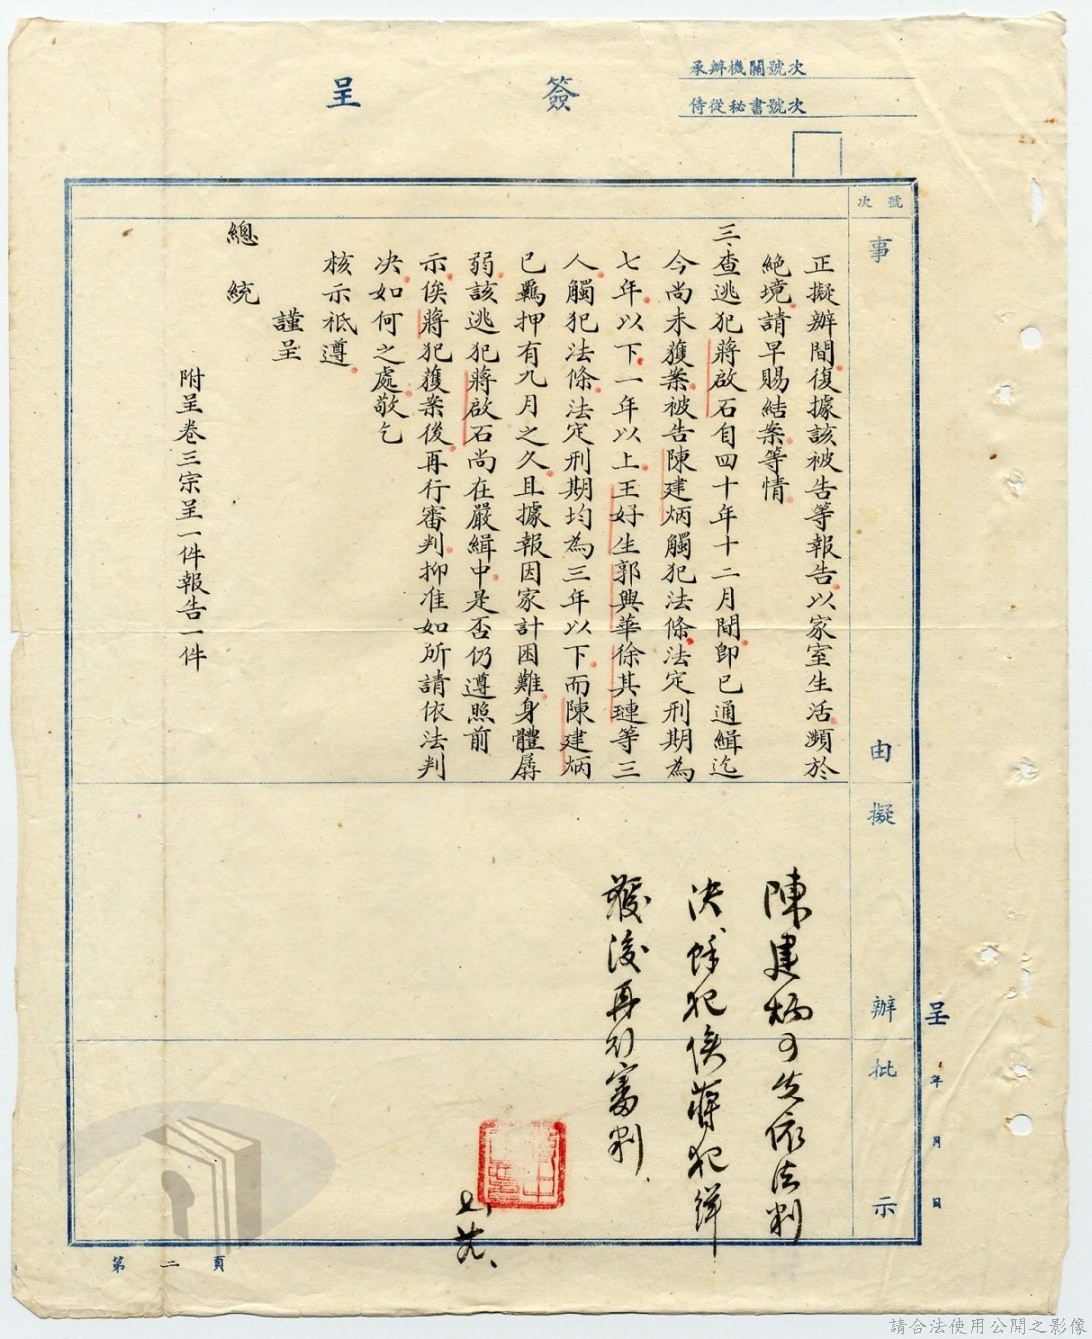 承辦機關號次
侍從秘書號次
簽呈
號次
事由
擬辦
批示
呈 年 月 日
正擬辦間復據該被告等報告以家室生活瀕於
絕境請早賜結案等情
三、查逃犯蔣啟石自四十年十二月間即已通緝迄
今尚未獲案被告陳建炳觸犯法條法定刑期為
七年以下一年以上王好生郭興華徐其璉等三
人觸犯法條法定刑期均為三年以下而陳建炳
已羈押有九月之久且據報因家計困難身體孱
弱該逃犯蔣啟石尚在嚴緝中是否仍遵照前
示俟蔣犯獲案後再行審判抑准如所請依法判
決如何之處敬乞
核示祗遵
謹呈
總統
附呈卷三宗呈一件報告一件
陳建炳可先依法判
決餘犯俟蔣犯緝
獲後再行審判
第二頁
請合法使用公開之影像